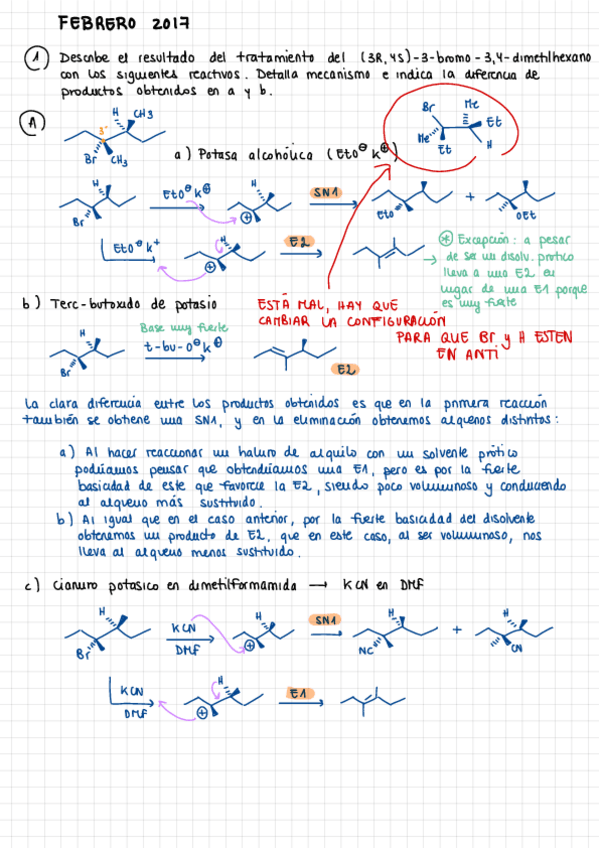 FEBRERO 2017
① Describe el resultado del tratamiento del (3R,4S)-3-bromo-3,4-dimetilhexano
con los siguientes reactivos. Detalla mecanismo e indica la diferencia de
productos obtenidos en a y b.
Ⓐ
H CH3
3º
Br CH3
Br Me
Et
Me Et H
a) Potasa alcohólica (EtO⊖ K⊕)
H Br
EtO⊖K⊕
H ⊕
SN1
EtO
+
OEt
EtO⊖K+
H ⊕
E2
⊛ Excepción: a pesar
de ser un disolv. prótico
lleva a una E2 en
lugar de una E1 porque
es muy fuerte
b) Terc-butoxido de potasio
ESTÁ MAL, HAY QUE
CAMBIAR LA CONFIGURACIÓN
PARA QUE Br y H ESTEN
EN ANTI
H Br
Base muy fuerte
t-bu-O⊖K⊕
E2
La clara diferencia entre los productos obtenidos es que en la primera reacción
también se obtiene una SN1, y en la eliminación obtenemos alquenos distintos:
a) Al hacer reaccionar un haluro de alquilo con un solvente prótico
podríamos pensar que obtendríamos una E1, pero es por la fuerte
basicidad de este que favorece la E2, siendo poco voluminoso y conduciendo
al alqueno más sustituido.
b) Al igual que en el caso anterior, por la fuerte basicidad del disolvente
obtenemos un producto de E2, que en este caso, al ser voluminoso, nos
lleva al alqueno menos sustituido.
c) Cianuro potasico en dimetilformamida → KCN en DMF
H Br
KCN
DMF
H ⊕
SN1
H NC
+
H CN
KCN
DMF
H ⊕
E1